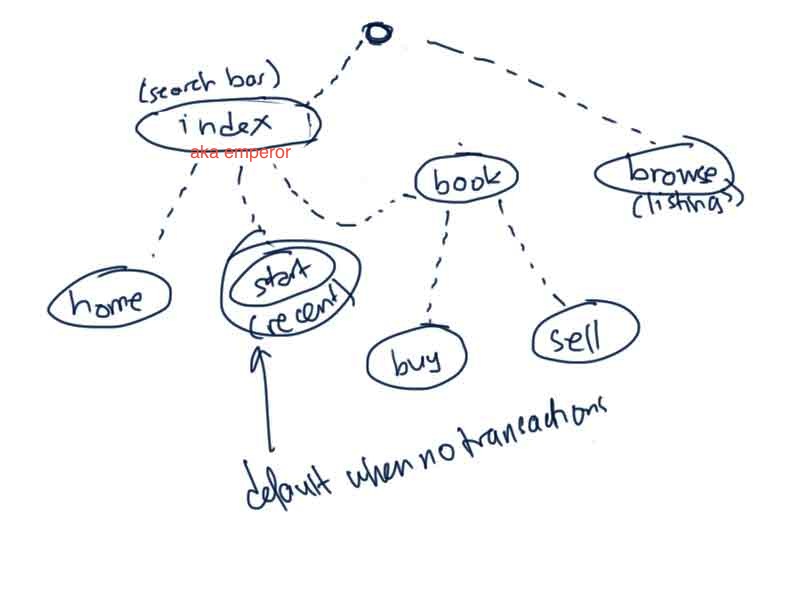 (search bar)
index
aka emperor
book
browse
(listings)
home
start
(recent)
buy
sell
default when no transactions